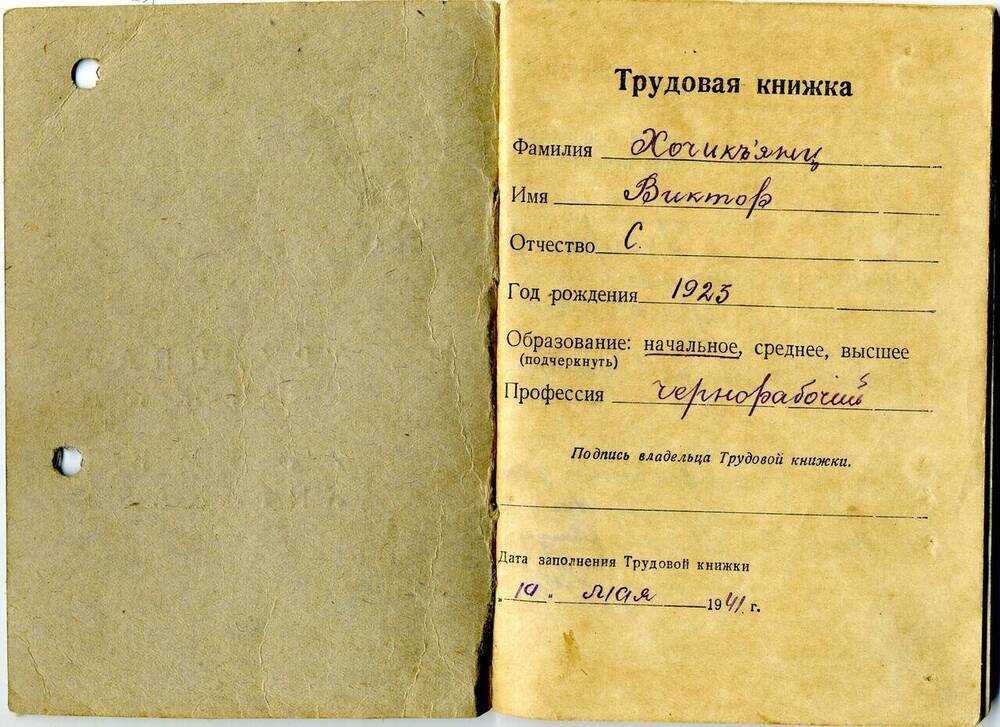 Трудовая книжка
Фамилия Хочикъянц
Имя Виктор
Отчество С.
Год рождения 1923
Образование: начальное, среднее, высшее
(подчеркнуть)
Профессия чернорабочий
Подпись владельца Трудовой книжки.
Дата заполнения Трудовой книжки
„ “ мая 1941 г.